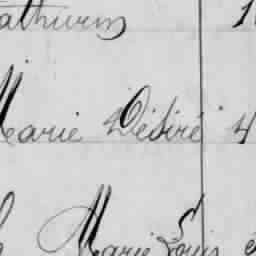 athurin 1
Marie Désiré 4
Marie Louis